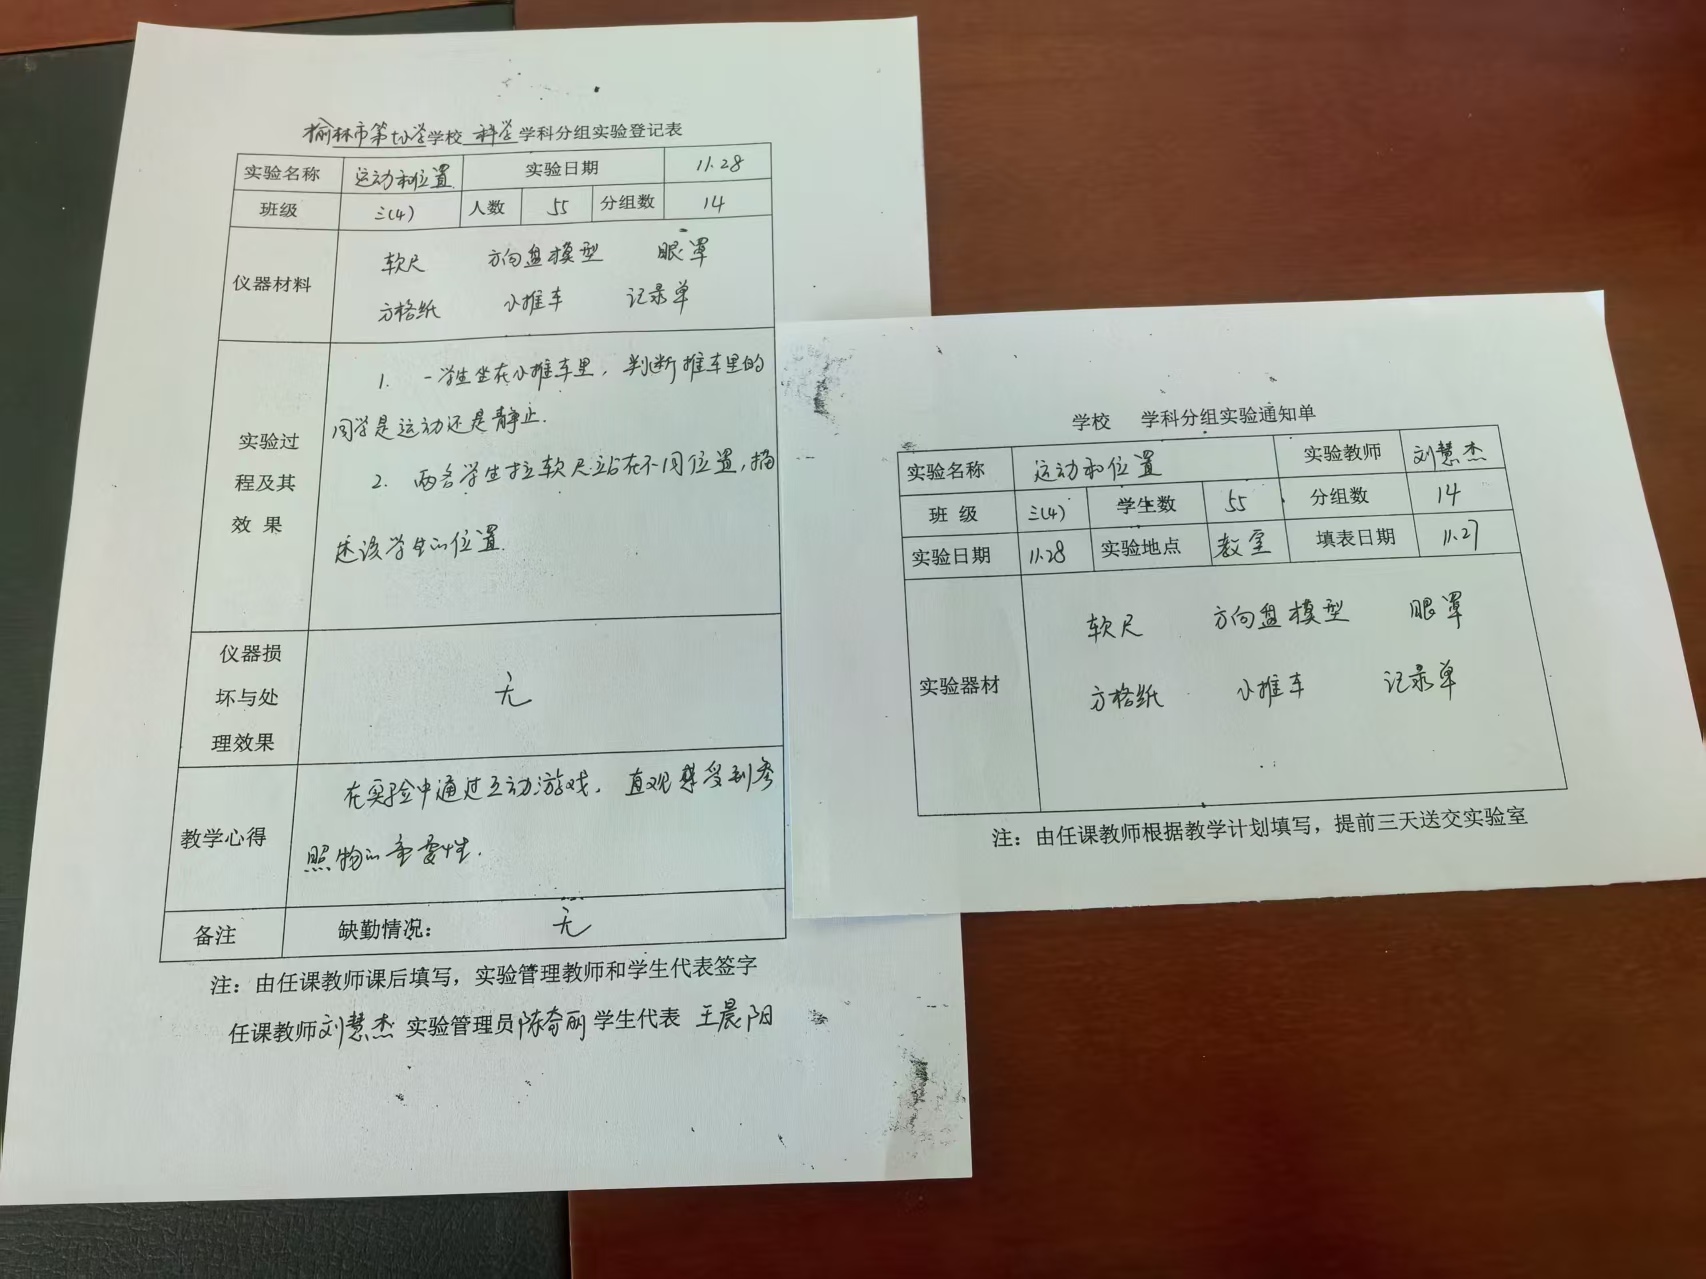 榆林市第七小学学校 科学学科分组实验登记表
实验名称 运动和位置 实验日期 11.28
班级 三(4) 人数 55 分组数 14
仪器材料
软尺 方向盘模型 眼罩
方格纸 小推车 记录单
实验过程及其效果
1. 一学生坐在小推车里，判断推车里的
同学是运动还是静止.
2. 两名学生拉软尺站在不同位置，描
述该学生的位置.
仪器损坏与处理效果 无
教学心得
在实验中通过互动游戏，直观感受到参
照物的重要性.
备注 缺勤情况： 无
注：由任课教师课后填写，实验管理教师和学生代表签字
任课教师刘慧杰 实验管理员陈奋丽 学生代表 王晨阳
学校 学科分组实验通知单
实验名称 运动和位置 实验教师 刘慧杰
班 级 三(4) 学生数 55 分组数 14
实验日期 11.28 实验地点 教室 填表日期 11.27
实验器材
软尺 方向盘模型 眼罩
方格纸 小推车 记录单
注：由任课教师根据教学计划填写，提前三天送交实验室